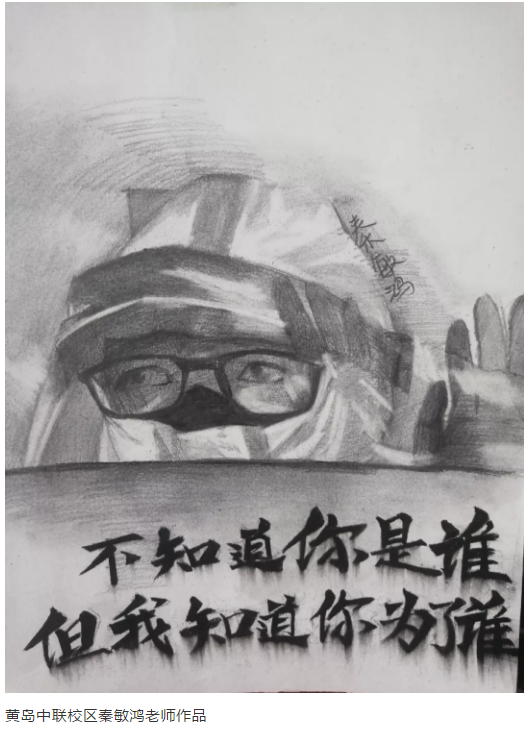 秦敏鸿
不知道你是谁
但我知道你为了谁
黄岛中联校区秦敏鸿老师作品